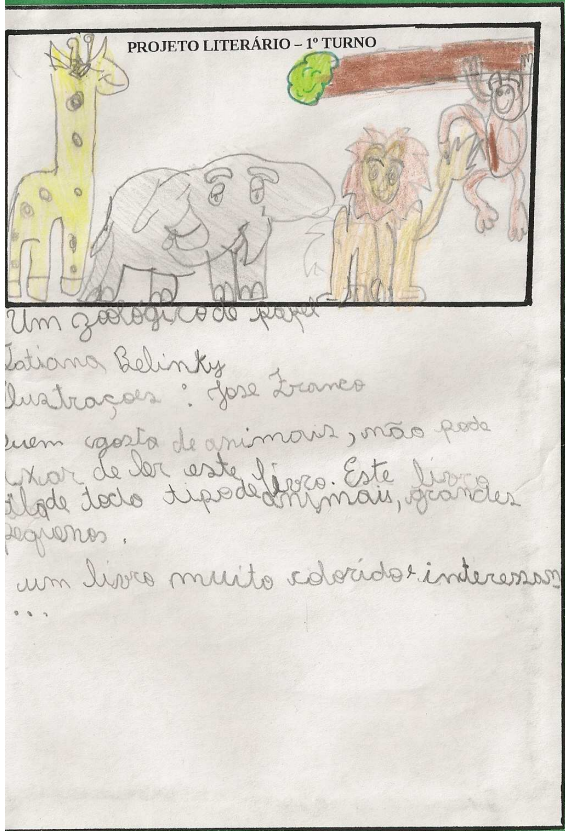 PROJETO LITERÁRIO – 1º TURNO
Um zoológico de papel
Tatiana Belinky
lustrações : Jose Franco
uem gosta de animais, não pode
ixar de ler este livro. Este livro
fala de todo tipo de animais, grandes
pequenos.
um livro muito colorido e interessan
...